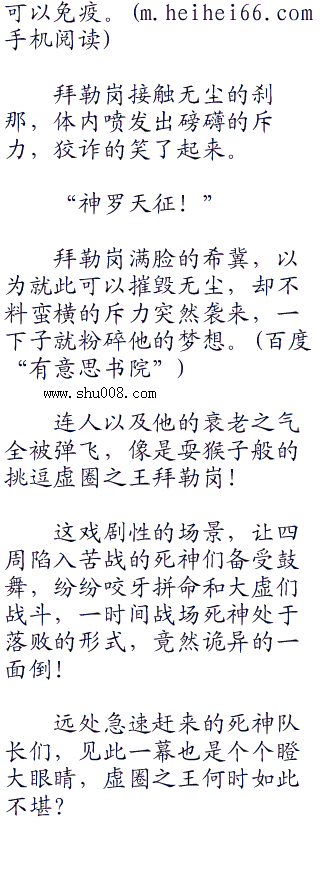 可以免疫。(m.heihei66.com
手机阅读)
拜勒岗接触无尘的刹
那，体内喷发出磅礴的斥
力，狡诈的笑了起来。
“神罗天征！”
拜勒岗满脸的希冀，以
为就此可以摧毁无尘，却不
料蛮横的斥力突然袭来，一
下子就粉碎他的梦想。(百度
“有意思书院”)
www.shu008.com
连人以及他的衰老之气
全被弹飞，像是耍猴子般的
挑逗虚圈之王拜勒岗！
这戏剧性的场景，让四
周陷入苦战的死神们备受鼓
舞，纷纷咬牙拼命和大虚们
战斗，一时间战场死神处于
落败的形式，竟然诡异的一
面倒！
远处急速赶来的死神队
长们，见此一幕也是个个瞪
大眼睛，虚圈之王何时如此
不堪？